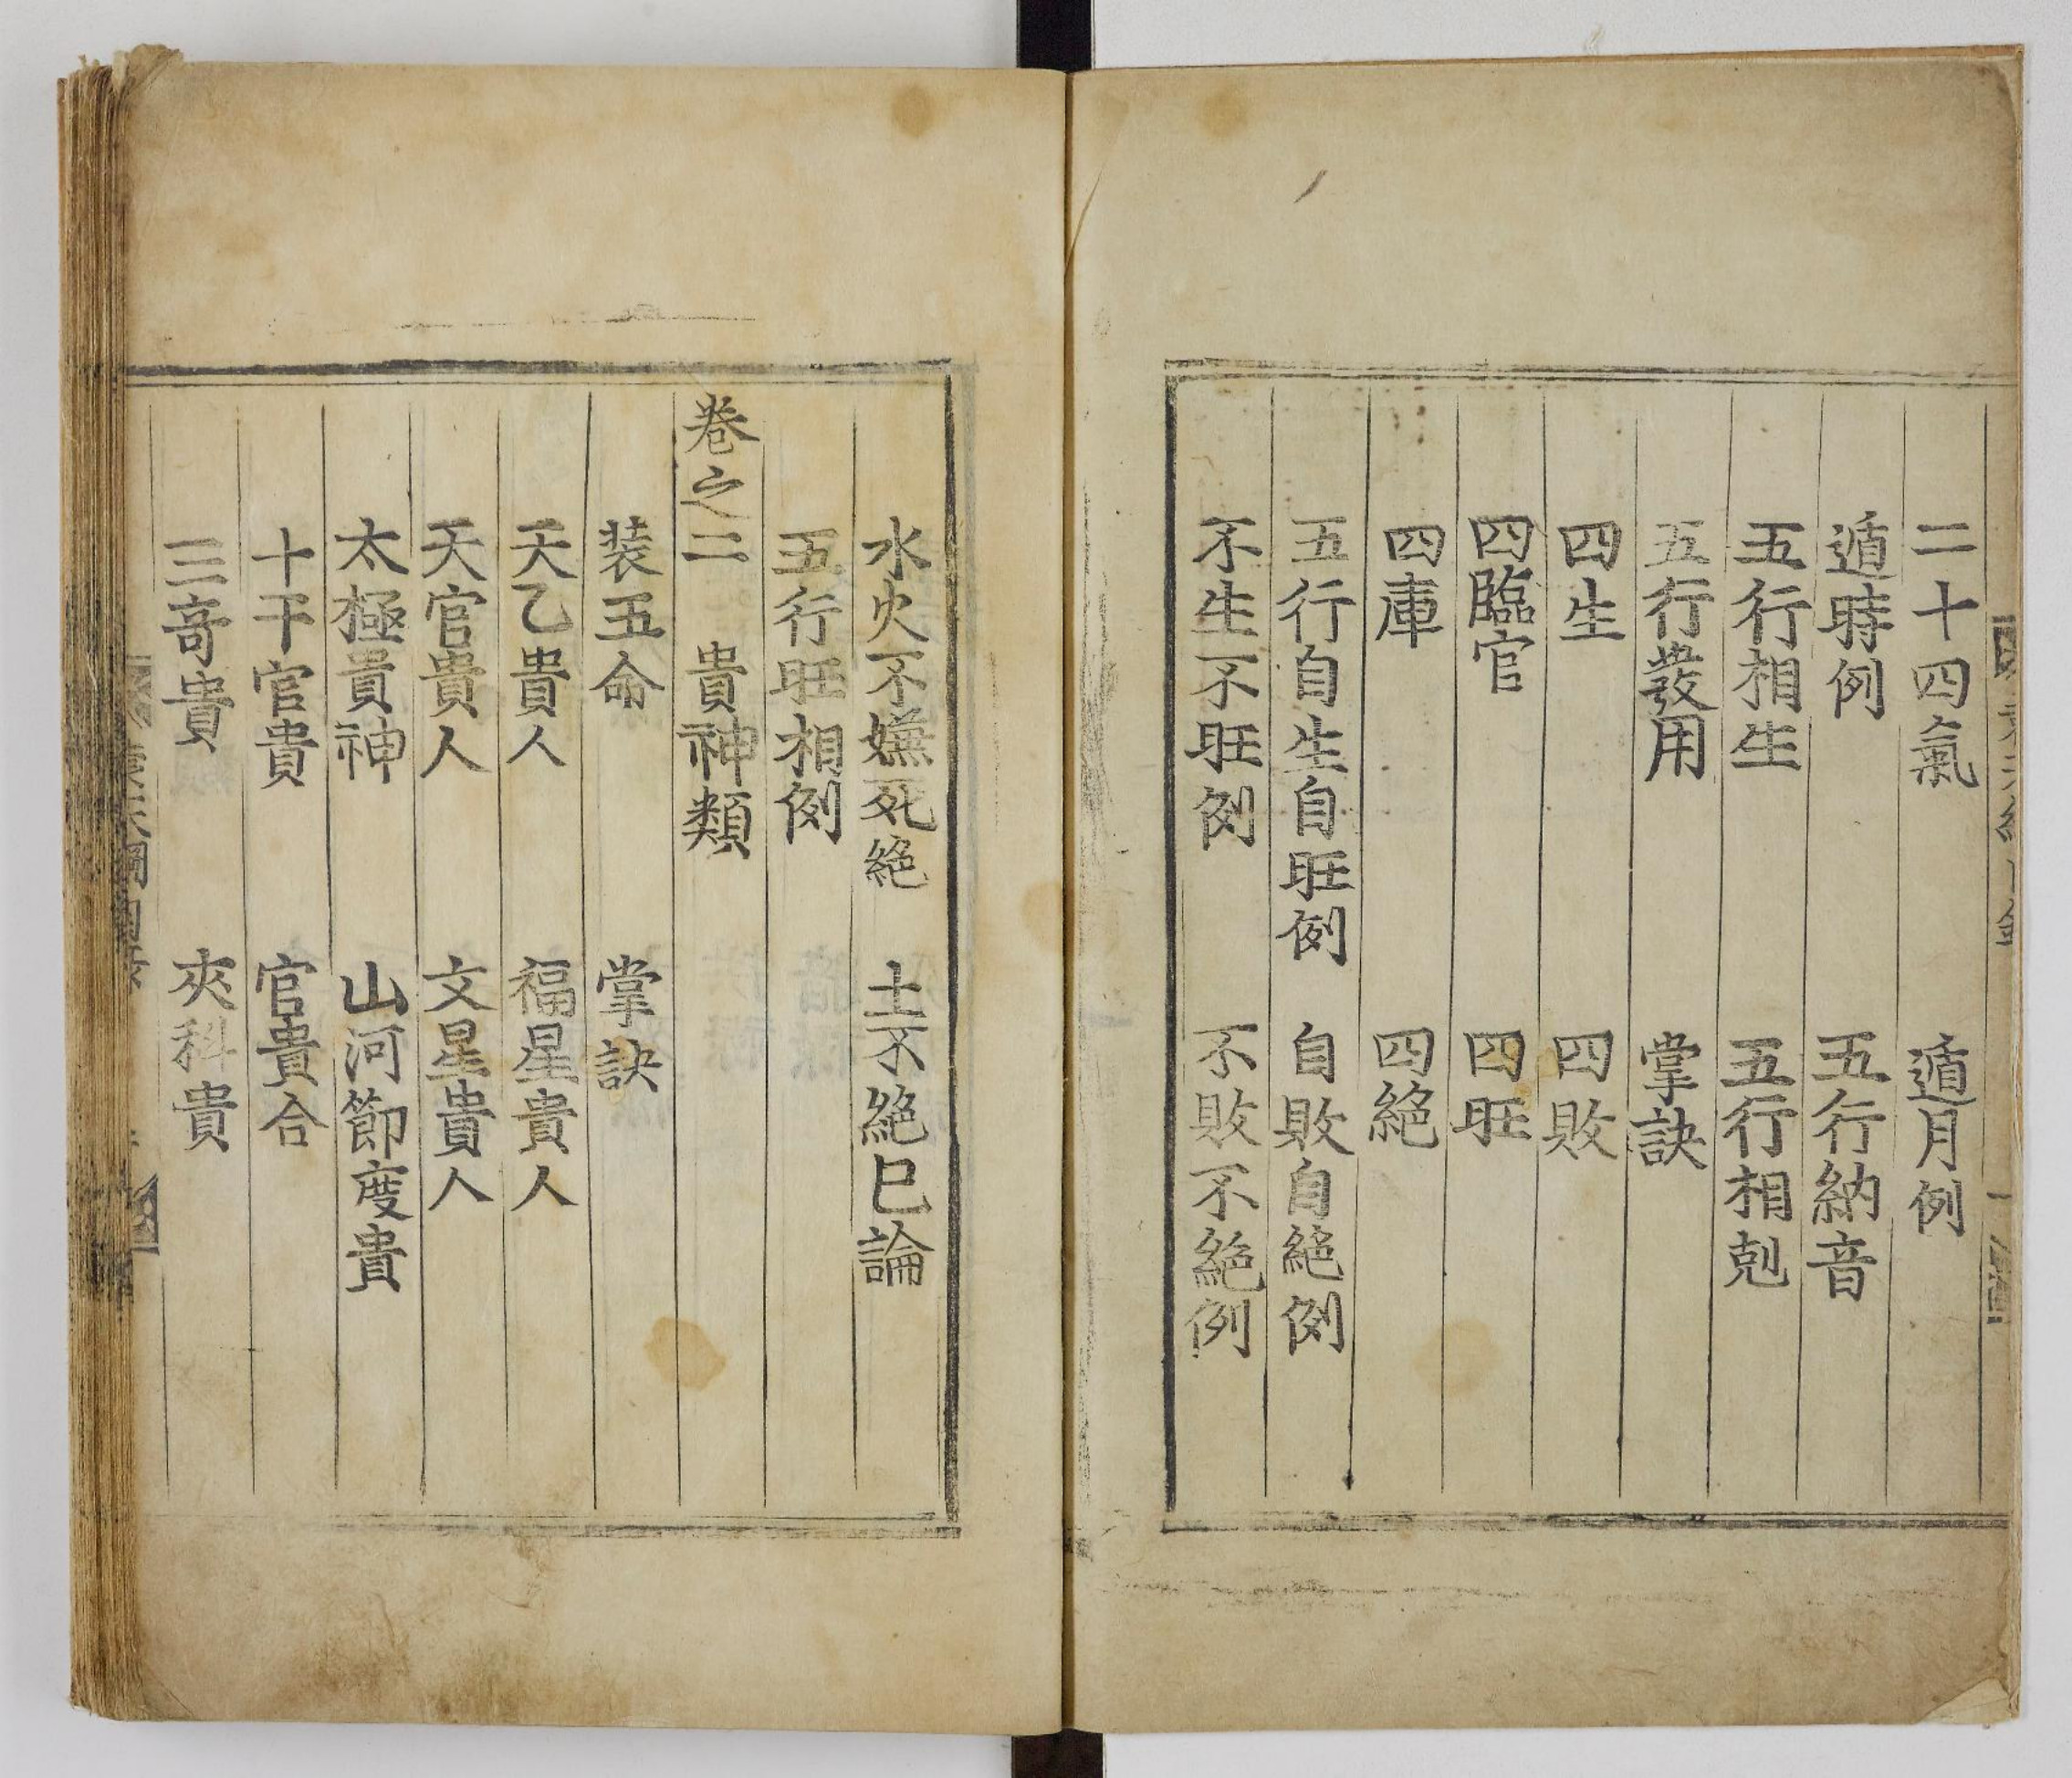 二十四氣　遁月例
遁時例　五行納音
五行相生　五行相剋
五行發用　掌訣
四生　四敗
四臨官　四旺
四庫　四絕
五行自生自旺例　自敗自絕例
不生不旺例　不敗不絕例
水火不嫌死絕　土不絕巳論
五行旺相例
卷之二　貴神類
装五命　掌訣
天乙貴人　福星貴人
天官貴人　文星貴人
太極貴神　山河節度貴
十干官貴　官貴合
三奇貴　夾科貴